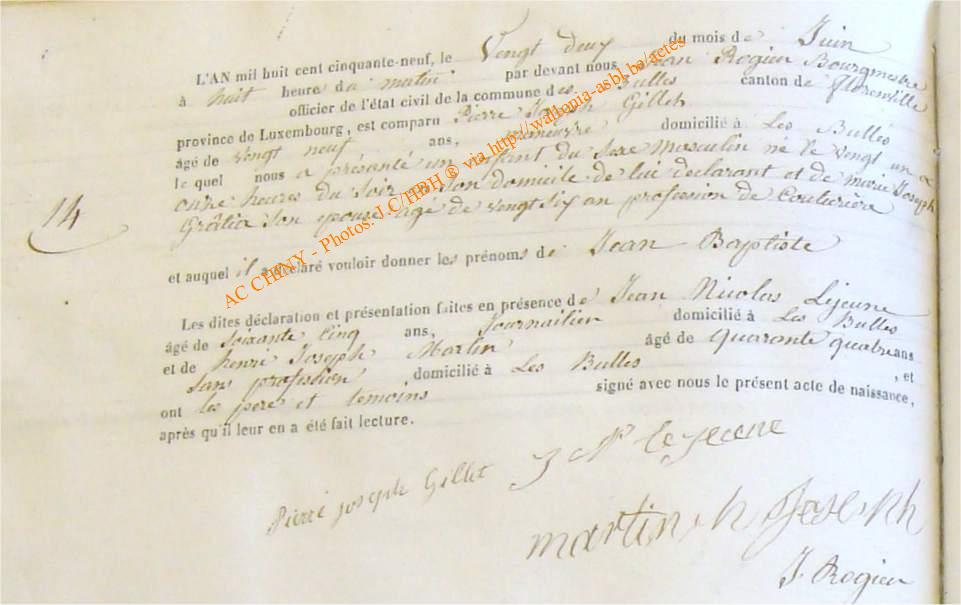 L'AN mil huit cent cinquante-neuf, le Vingt deux du mois de Juin
à huit heure du matin par devant nous Jean Rogier Bourgmestre
officier de l'état civil de la commune des Bulles canton de florenville
province de Luxembourg, est comparu Pierre Joseph Gillet
âgé de vingt neuf ans, domicilié à Les Bulles
le quel nous a présanté un enfant du Sexe Masculin né le vingt un a
onze heures du Soir en Son domicile de lui déclarant et de marie Joseph
Grâtia Son epouse agé de vingt Six an profession de Couturiere
14
et auquel il a déclaré vouloir donner les prénoms de Jean Baptiste
Les dites déclaration et présentation faites en présence de Jean Nicolas Lejeune
âgé de Soixante Cinq ans, Journailier domicilié à Les Bulles
et de henri Joseph Martin âgé de Quarante quatre ans
Sans profession domicilié à Les Bulles , et
ont les pere et temoins signé avec nous le présent acte de naissance,
après qu'il leur en a été fait lecture.
Pierre joseph Gillet J N lejeune
martin h Joseph
J. Rogier
AC CHINY - Photos: J.C/HBH ® via http://wallonia-asbl.be/actes